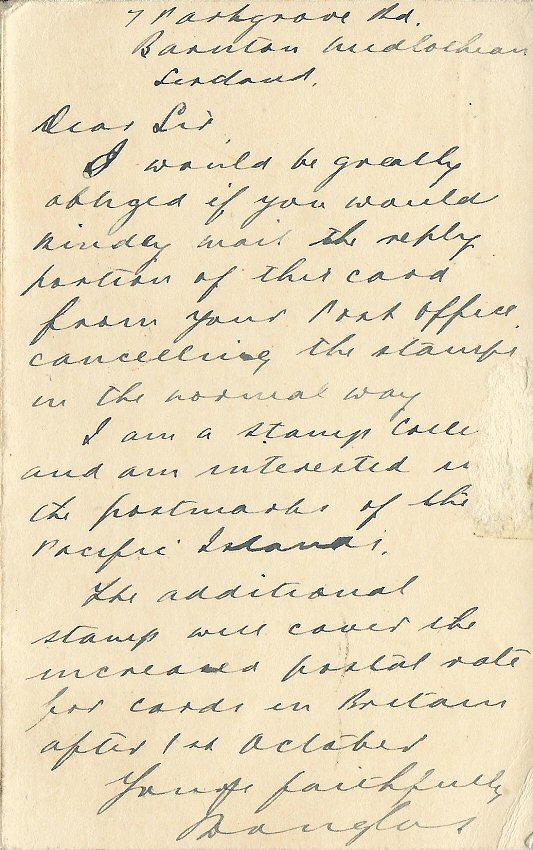 7 Parkgrove Rd.
Barnton Midlothian
Scotland.
Dear Sir
I would be greatly
obliged if you would
kindly mail the reply
portion of this card
from your Post Office,
cancelling the stamps
in the normal way
I am a stamp Colle
and am interested in
the postmarks of the
Pacific Islands.
The additional
stamp will cover the
increased postal rate
for cards in Britain
after 1st October
Yours faithfully
Douglas